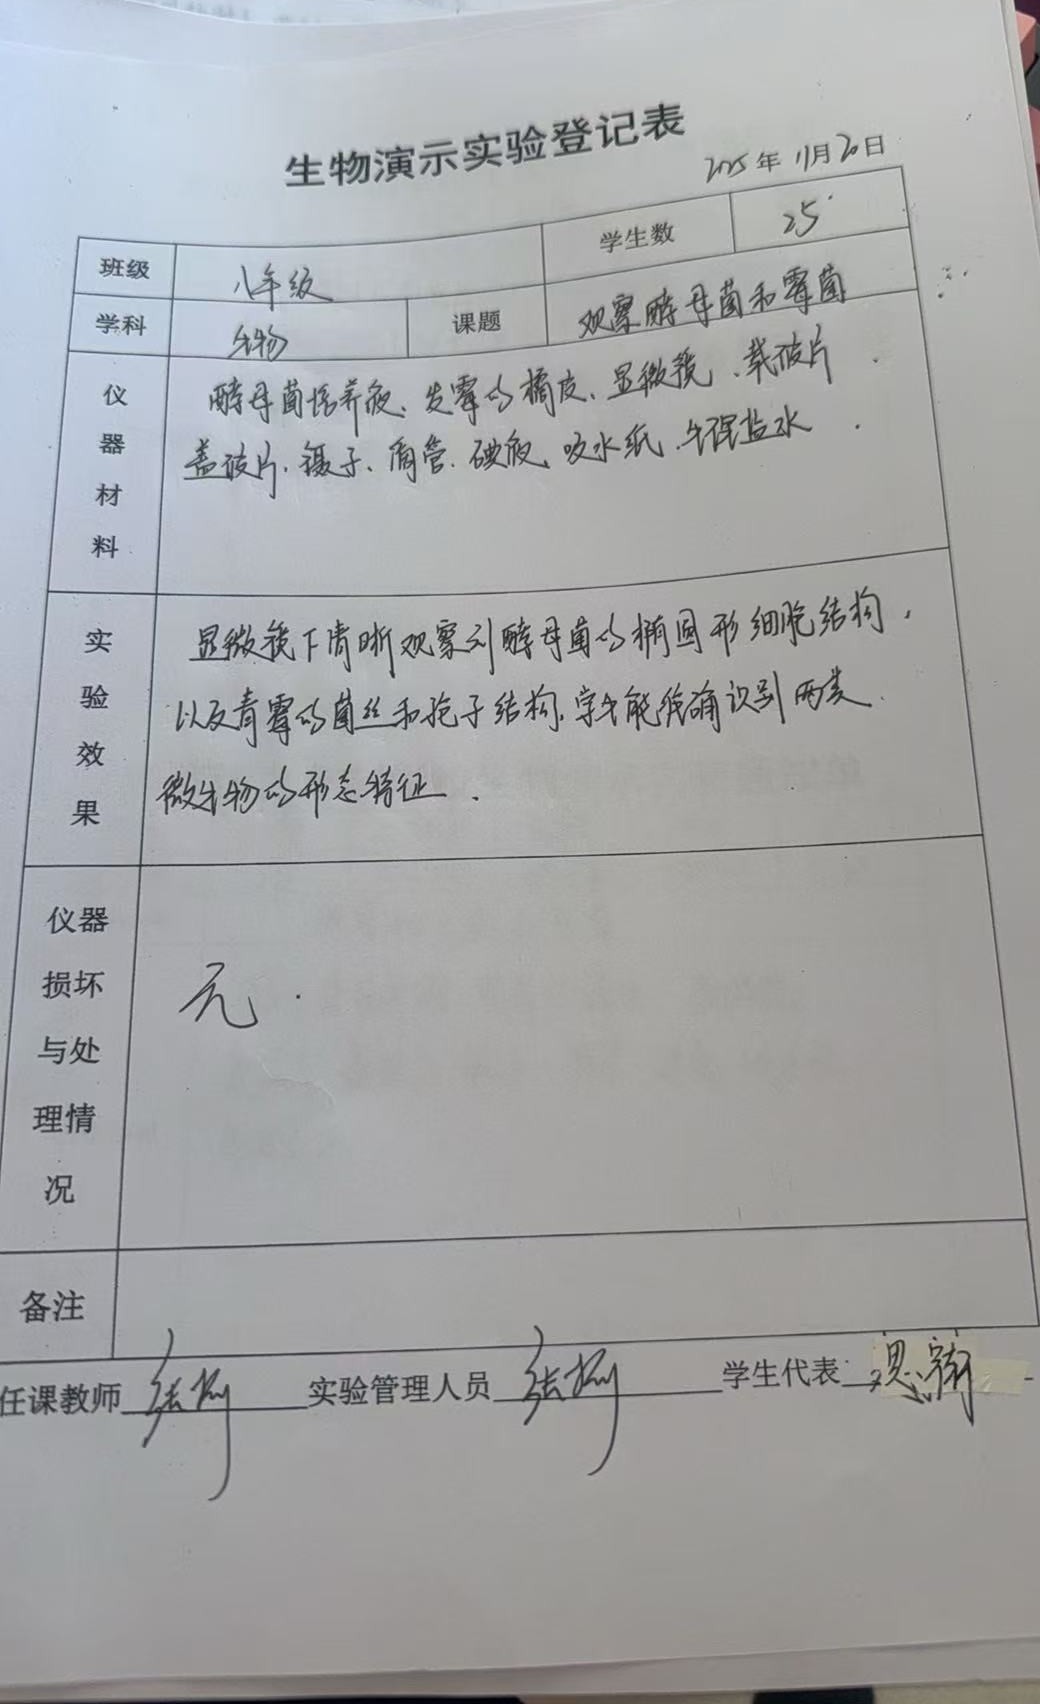 生物演示实验登记表
2025年11月20日
班级 八年级 学生数 25
学科 生物 课题 观察酵母菌和霉菌
仪器材料
酵母菌培养液、发霉的橘皮、显微镜、载玻片
盖玻片、镊子、滴管、碘液、吸水纸、生理盐水
实验效果
显微镜下清晰观察到酵母菌的椭圆形细胞结构,
以及青霉的菌丝和孢子结构,学生能准确识别两类
微生物的形态特征.
仪器损坏与处理情况
无.
备注
任课教师 实验管理人员 学生代表